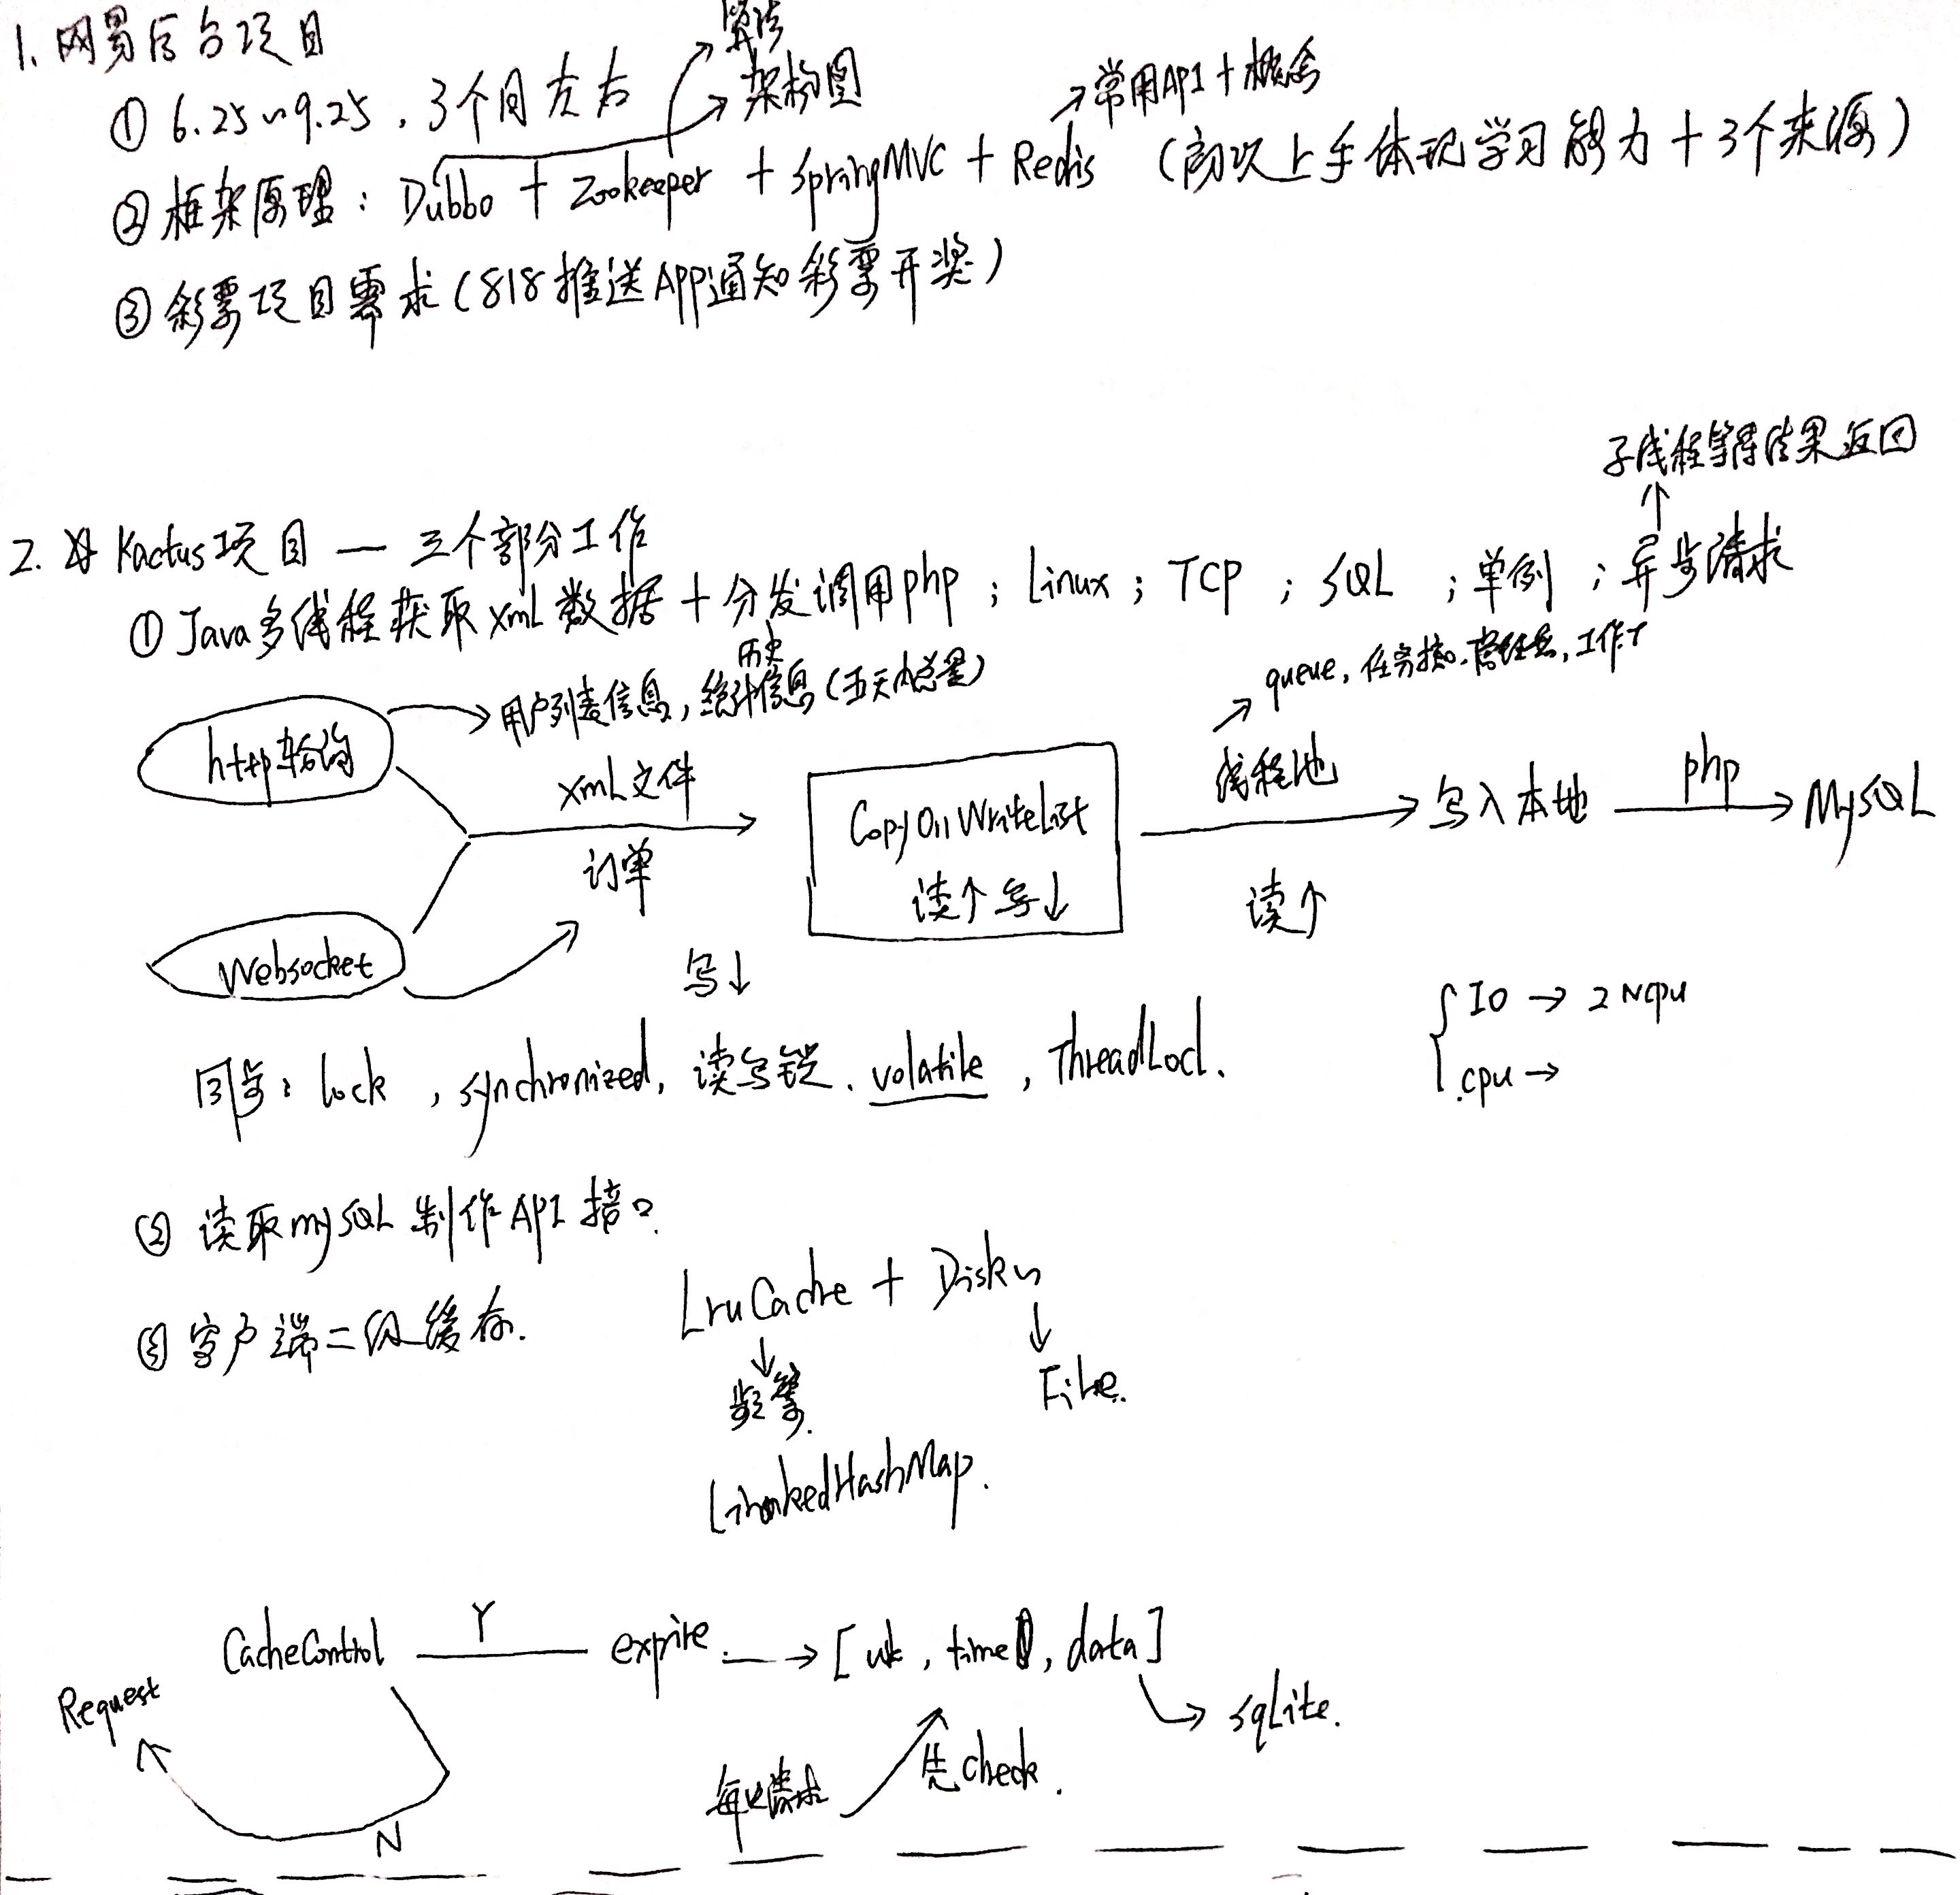 1. 网易后台项目
算法
架构图
① 6.25~9.25, 3个月左右
常用API + 概念
② 框架原理: Dubbo + Zookeeper + SpringMVC + Redis (初次上手体现学习能力 + 3个来源)
③ 彩票项目需求 (818推送APP通知彩票开奖)
子线程等待结果返回
2. Kactus项目 — 三个部分工作
① Java多线程获取xml数据 + 分发调用php ; Linux ; TCP ; SQL ; 单例 ; 异步请求
历史
用户列表信息, 统计信息 (五天内总量)
queue, 任务接口, 工作T
http轮询
xml文件
订单
CopyOnWriteList
读↑ 写↓
线程池
读↑
写入本地
php
MySQL
Websocket
写↓
IO → 2 Ncpu
cpu →
同步: lock , synchronized, 读写锁. volatile , ThreadLocl.
② 读取mySQL 制作API接口.
③ 客户端二级缓存.
LruCache + Disk~
频繁.
File.
LinkedHashMap.
CacheControl
Y
expire. → [ uk , time, data ]
Request
sqlite.
每次请求
先check.
N